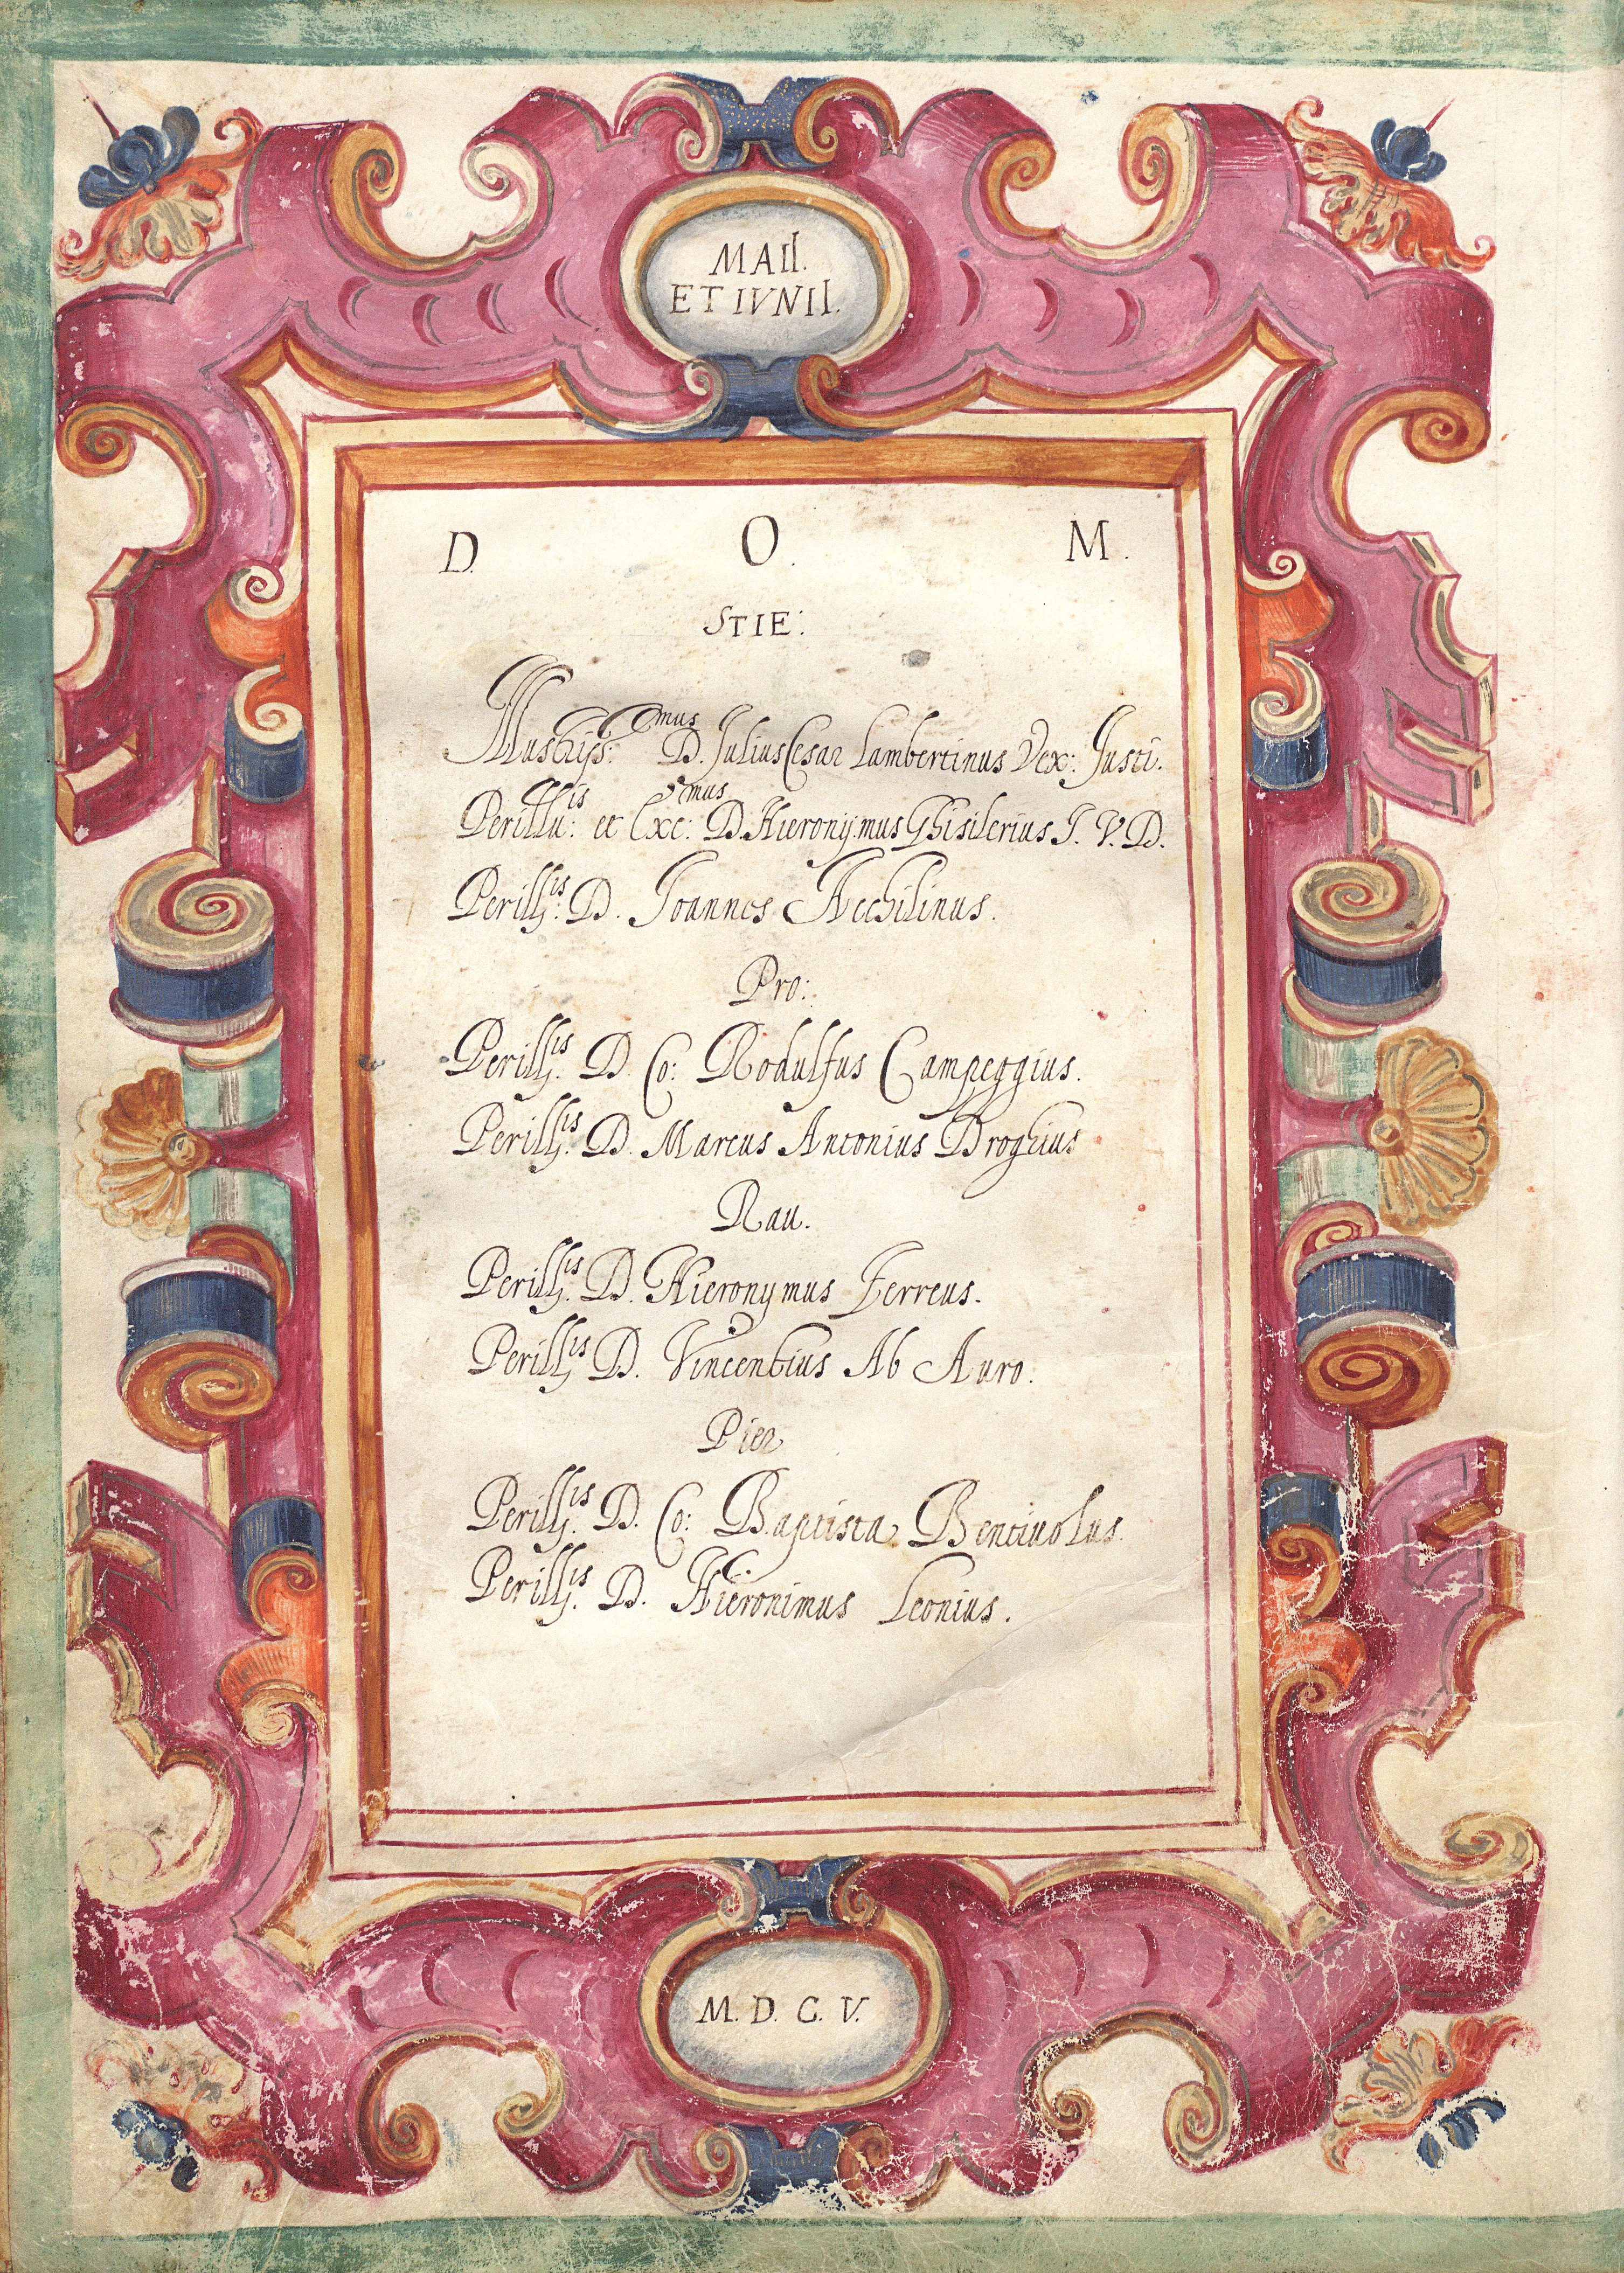 MAII.
ET IVNII.
D. O. M.
STIE:
Illustriss:mus D. Julius Cesar Lambertinus Vex: Justi.
Perillu:is et Exc:mus D. Hieronymus Ghisilerius J. V. D.
Perill:is D. Joannes Acchilinus.
Pro:
Perill:is D. Co: Rodulfus Campeggius.
Perill:is D. Marcus Antonius Droghius
Rau.
Perill:is D. Hieronymus Ferreus.
Perill:is D. Vincentius Ab Auro.
Pier
Perill:is D. Co: Baptista Bentiuolus.
Perill:is D. Hieronimus Leonius.
M. D. C. V.